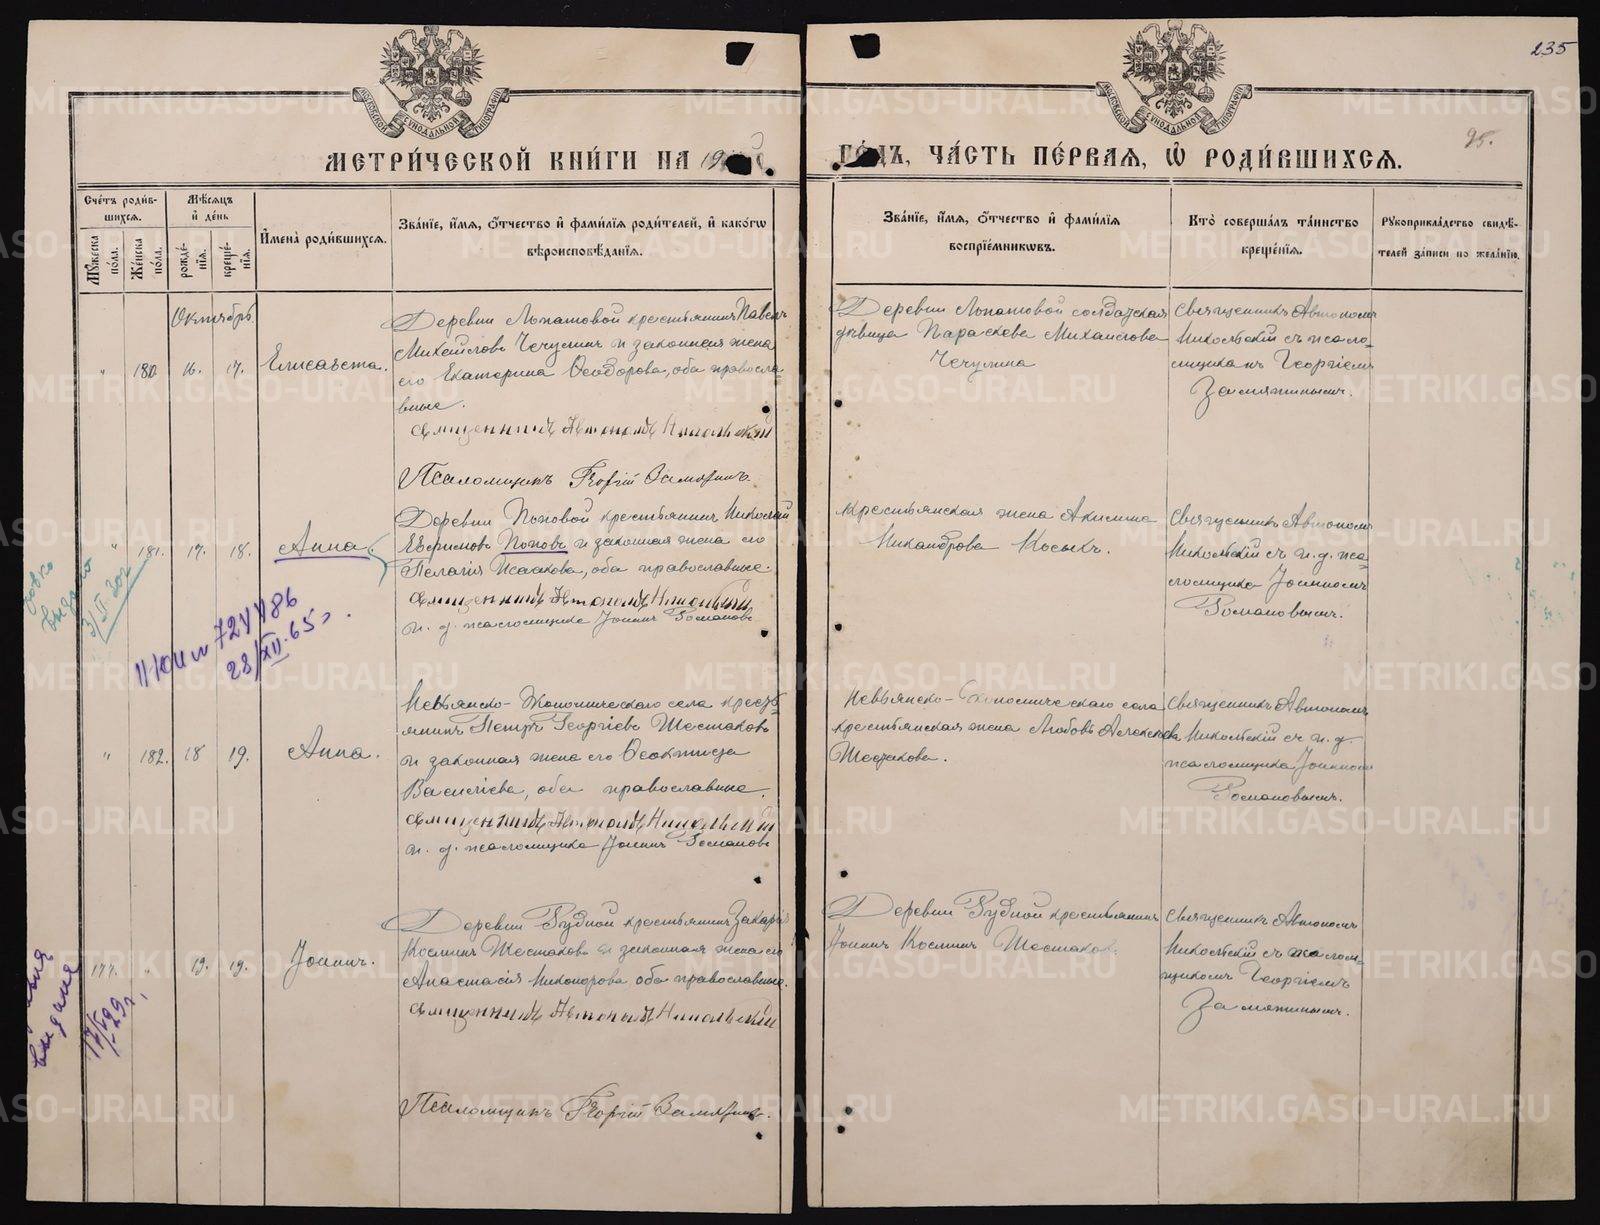 235
95.
МОСКОВСКОЙ СѴНОДАЛЬНОЙ ТИПОГРАФІИ
МОСКОВСКОЙ СѴНОДАЛЬНОЙ ТИПОГРАФІИ
МЕТРИ́ЧЕСКОЙ КНИ́ГИ НА 19
ГО́ДЪ, ЧА́СТЬ ПЕ́РВАѦ, Ѡ҆ РОДИ́ВШИХСѦ.
Сче́тъ роди́в-
шихсѧ.
Мꙋ́жеска по́ла.
Же́нска по́ла.
Мѣ́сѧцъ
и҆ де́нь
рожде́-
нїѧ.
креще́-
нїѧ.
И҆мена̀ роди́вшихсѧ.
Зва́нїе, и҆́мѧ, ѻ҆́тчество и҆ фами́лїѧ роди́телей, и҆ како́гѡ
вѣроисповѣ́данїѧ.
Зва́нїе, и҆́мѧ, ѻ҆́тчество и҆ фами́лїѧ
воспрїе́мникѡвъ.
Кто̀ соверша́лъ та́инство
креще́нїѧ.
Рꙋкоприкла́дство свидѣ́-
телей за́писи по жела́нїю.
Октябрь.
" 180 16. 17. Елисавета.
Деревни Лопатовой крестьянинъ Павелъ
Михайловъ Чечулинъ и законная жена
его Екатерина Ѳеодорова, оба правосла-
вные.
Священникъ Автономъ Никольскій
Псаломщикъ Георгій Замятинъ.
Деревни Лопатовой солдатская
дѣвица Параскева Михайлова
Чечулина
Священникъ Автономъ
Никольскій съ псало-
мщикомъ Георгіемъ
Замятинымъ.
" 181. 17. 18. Анна.
Деревни Поповой крестьянинъ Николай
Евфимовъ Поповъ и законная жена его
Пелагія Исаакова, оба православные.
Священникъ Автономъ Никольскій
и. д. псаломщика Іоаннъ Романовъ
Крестьянская жена Акилина
Никандрова Косыхъ.
Священникъ Автономъ
Никольскій съ и. д. пса-
ломщика Іоанномъ
Романовымъ.
724486
28/XII.65г.
" 182. 18 19. Анна.
Невьянско-Экономическаго села кресть-
янинъ Петръ Георгіевъ Шестаковъ
и законная жена его Ѳеоктиста
Васильева, оба православные.
Священникъ Автономъ Никольскій
и. д. псаломщика Іоаннъ Романовъ
Невьянско-Экономическаго села
крестьянская жена Любовь Алексѣева
Шестакова.
Священникъ Автономъ
Никольскій съ и. д.
псаломщика Іоанномъ
Романовымъ.
177. " 19. 19. Іоаннъ.
Деревни Рудной крестьянинъ Захарія
Косминъ Шестаковъ и законная жена его
Анастасія Никонорова оба православные.
Священникъ Автономъ Никольскій
Псаломщикъ Георгій Замятинъ.
Деревни Рудной крестьянинъ
Іоаннъ Косминъ Шестаковъ.
Священникъ Автономъ
Никольскій съ псалом-
щикомъ Георгіемъ
Замятинымъ.
выдана
METRIKI.GASO-URAL.RU